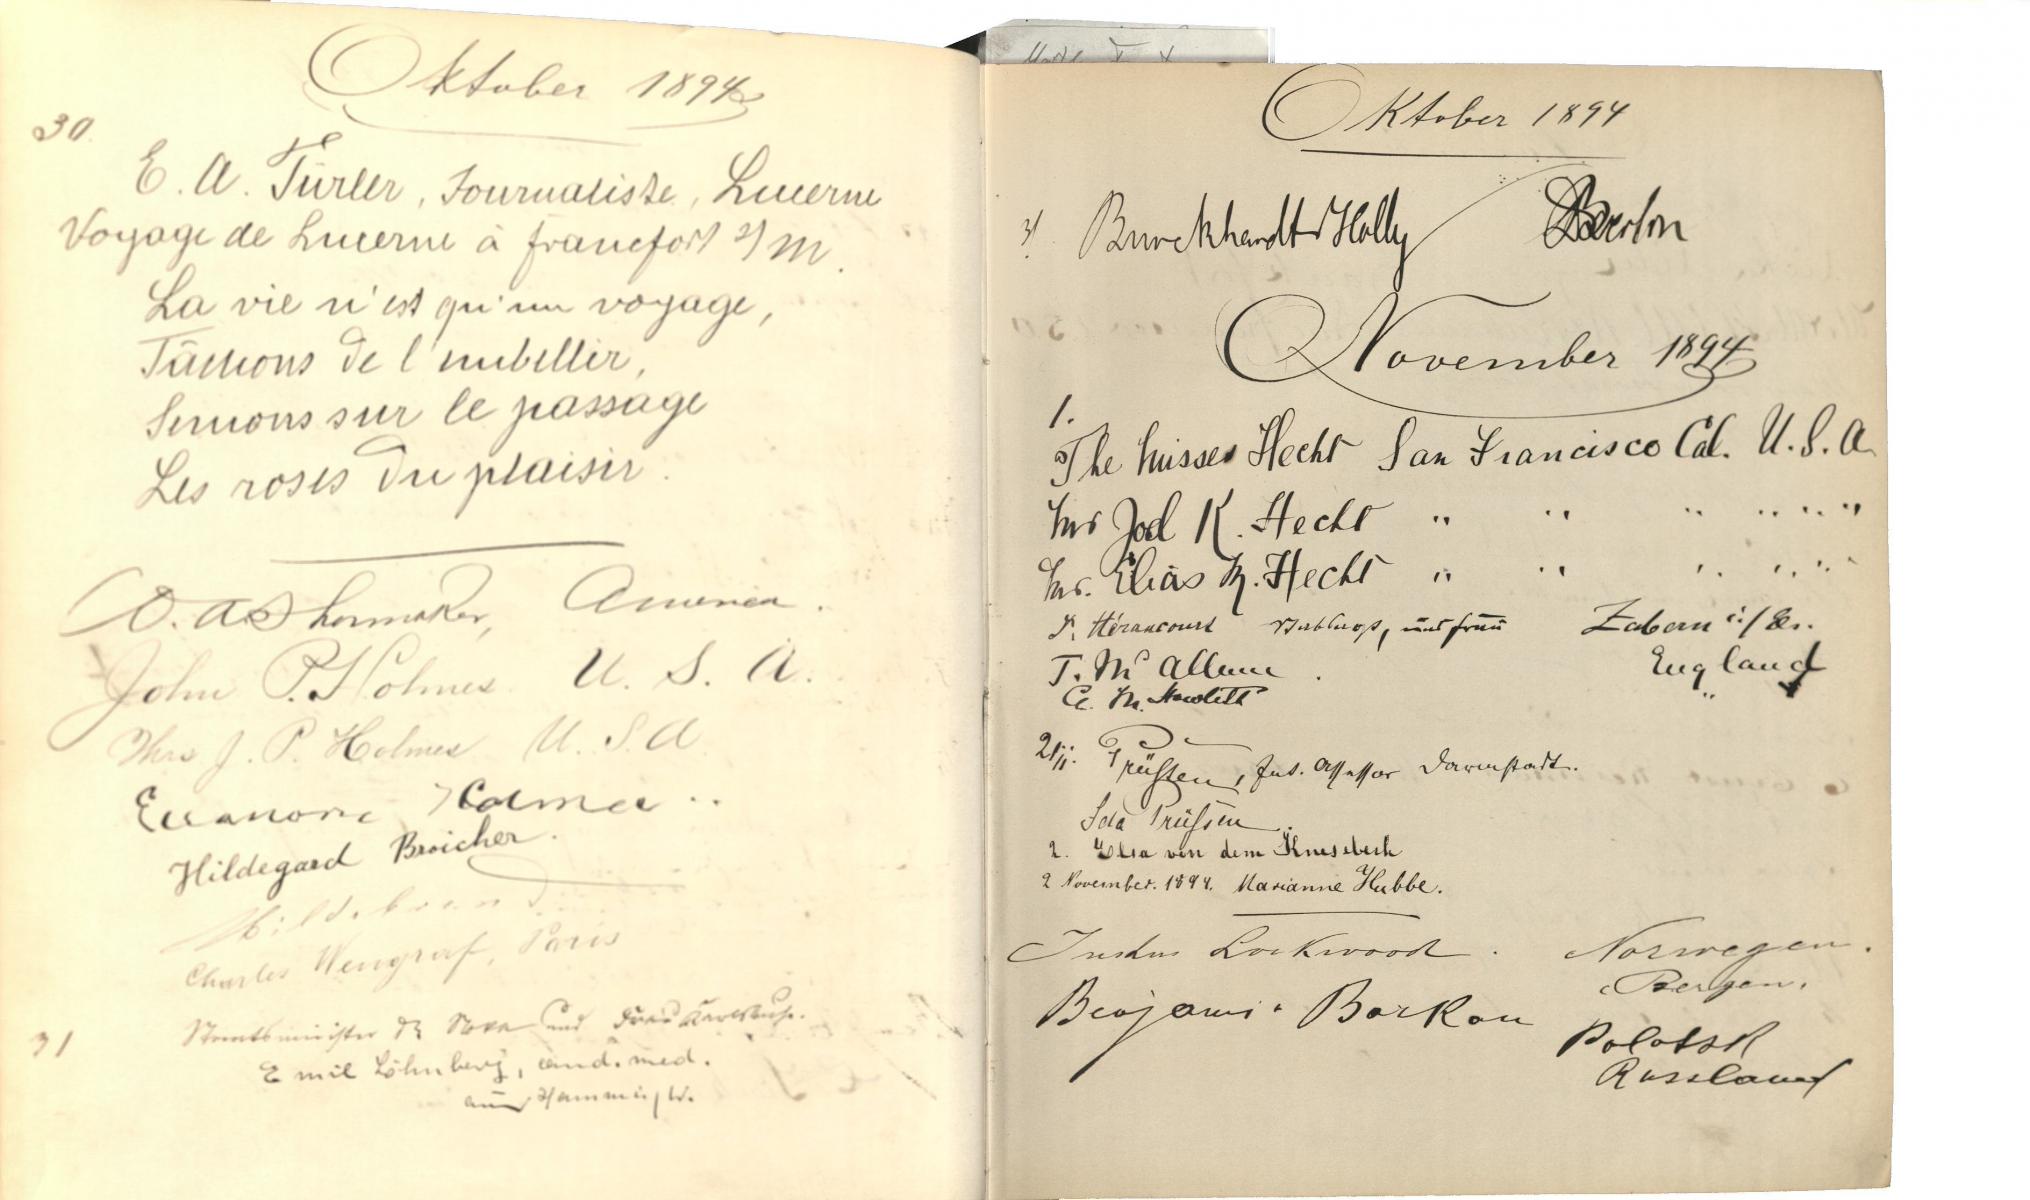 Oktober 1894
30.
E. A. Türler, Journaliste, Lucerne
Voyage de Lucerne à francfort s/M.
La vie n'est qu'un voyage,
Tâchons de l'embellir,
Semons sur le passage
Les roses du plaisir.
D. A. Shoemaker, America.
John P. Holmes U. S. A.
Mrs J. P. Holmes U. S. A
Eleanore Holmes
Hildegard Broicher.
Hildebrand
Charles Wengraf, Paris
31 Staatsminister Dr Nokk und Frau Karlsruhe.
Emil Löhnberg, cand. med.
aus Hamm i/W.
Oktober 1894
31. Burckhardt Holly Berlin
November 1894
1.
The Misses Hecht San Francisco Cal. U. S. A.
Mrs Joel K. Hecht " " " " " "
Mr. Elias M. Hecht " " " " " "
Hérancourt und Frau Zabern i/Els.
T. Mc Allum England
C. M. Hewlett "
2/11. Prüssen, Ger. Assessor Darmstadt.
Ida Prüssen.
2. Elsa von dem Knesebeck
2 November. 1894. Marianne Hubbe.
Justus Lockwood. Norwegen.
Bergen.
Benjamin Barkan Polotsk
Russland